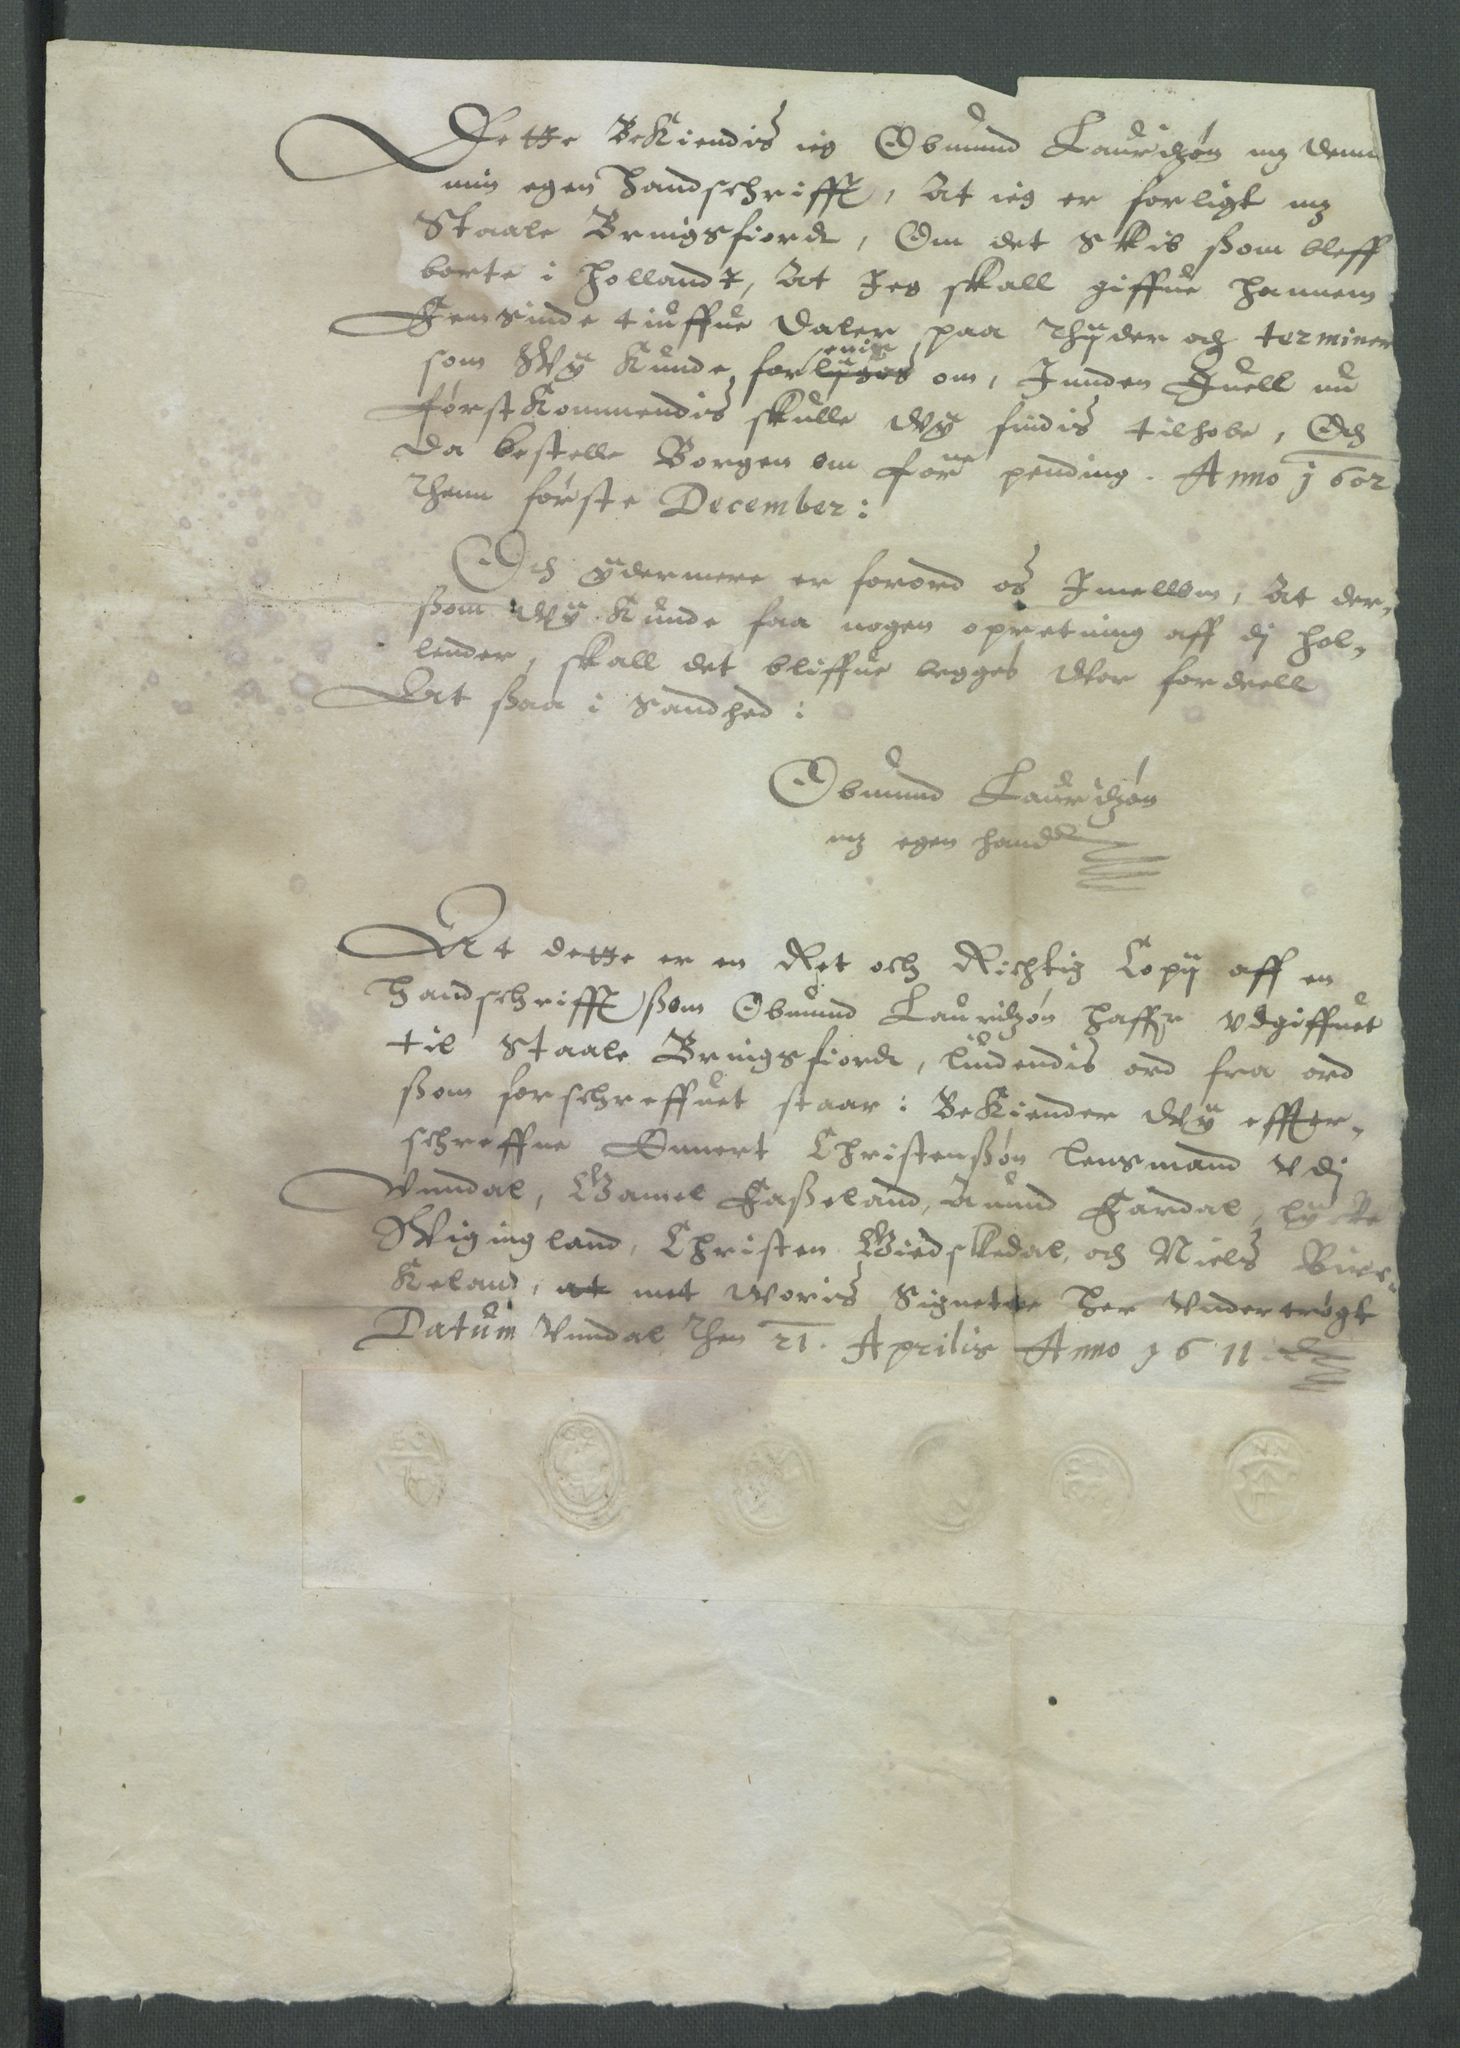 Dette Bekiendis ieg Obmund Lauridzøn mz denn
min egen handschrifft, At ieg er forligt mz
Staale Bringsfiord, Om det Skib ßom bleff
borte i Hollandt, At Jeg skall giffue hannem
Sensinde tiuffue daler paa Thyder och terminer
som Wy Kunde for enig om, Innden Juell nu
først Kommendis skulle Wy findis tilhobe, Och
da bestelle Borgen om forne pending. Anno 1602
Thenn første December:
Och ydermere er forord os Imellom, At der,
ßom Wy Kunde faa nogen opretning aff di Hol,
lender, skall det bliffue begges Wor fordeell
At ßaa i Sandhed:
Obmund Lauridzøn
mz egen hand
At dette er en Ret och Richtig Copij aff en
handschrifft ßom Obmund Lauridzøn haffr vdgiffuet
til Staale Bringsfiord, liudendis ord fra ord
ßom forschreffuet staar: Bekiender Wy effter,
schreffne Ennert Christenßøn lensmand vdj
Vnndal, Gamel Faßeland, Aanund Eardal, lycke
Wigingland, Christen Giedskedal, och Niels Birc,
Keland, met Woris Signette her vnder trøgt
Datum Vnndal Then 21. Aprilis Anno 1611
NN